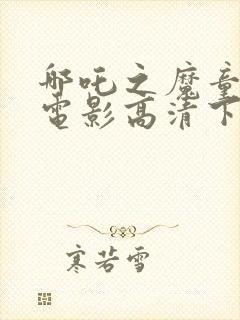 哪吒之魔童
电影高清下
寒若雪